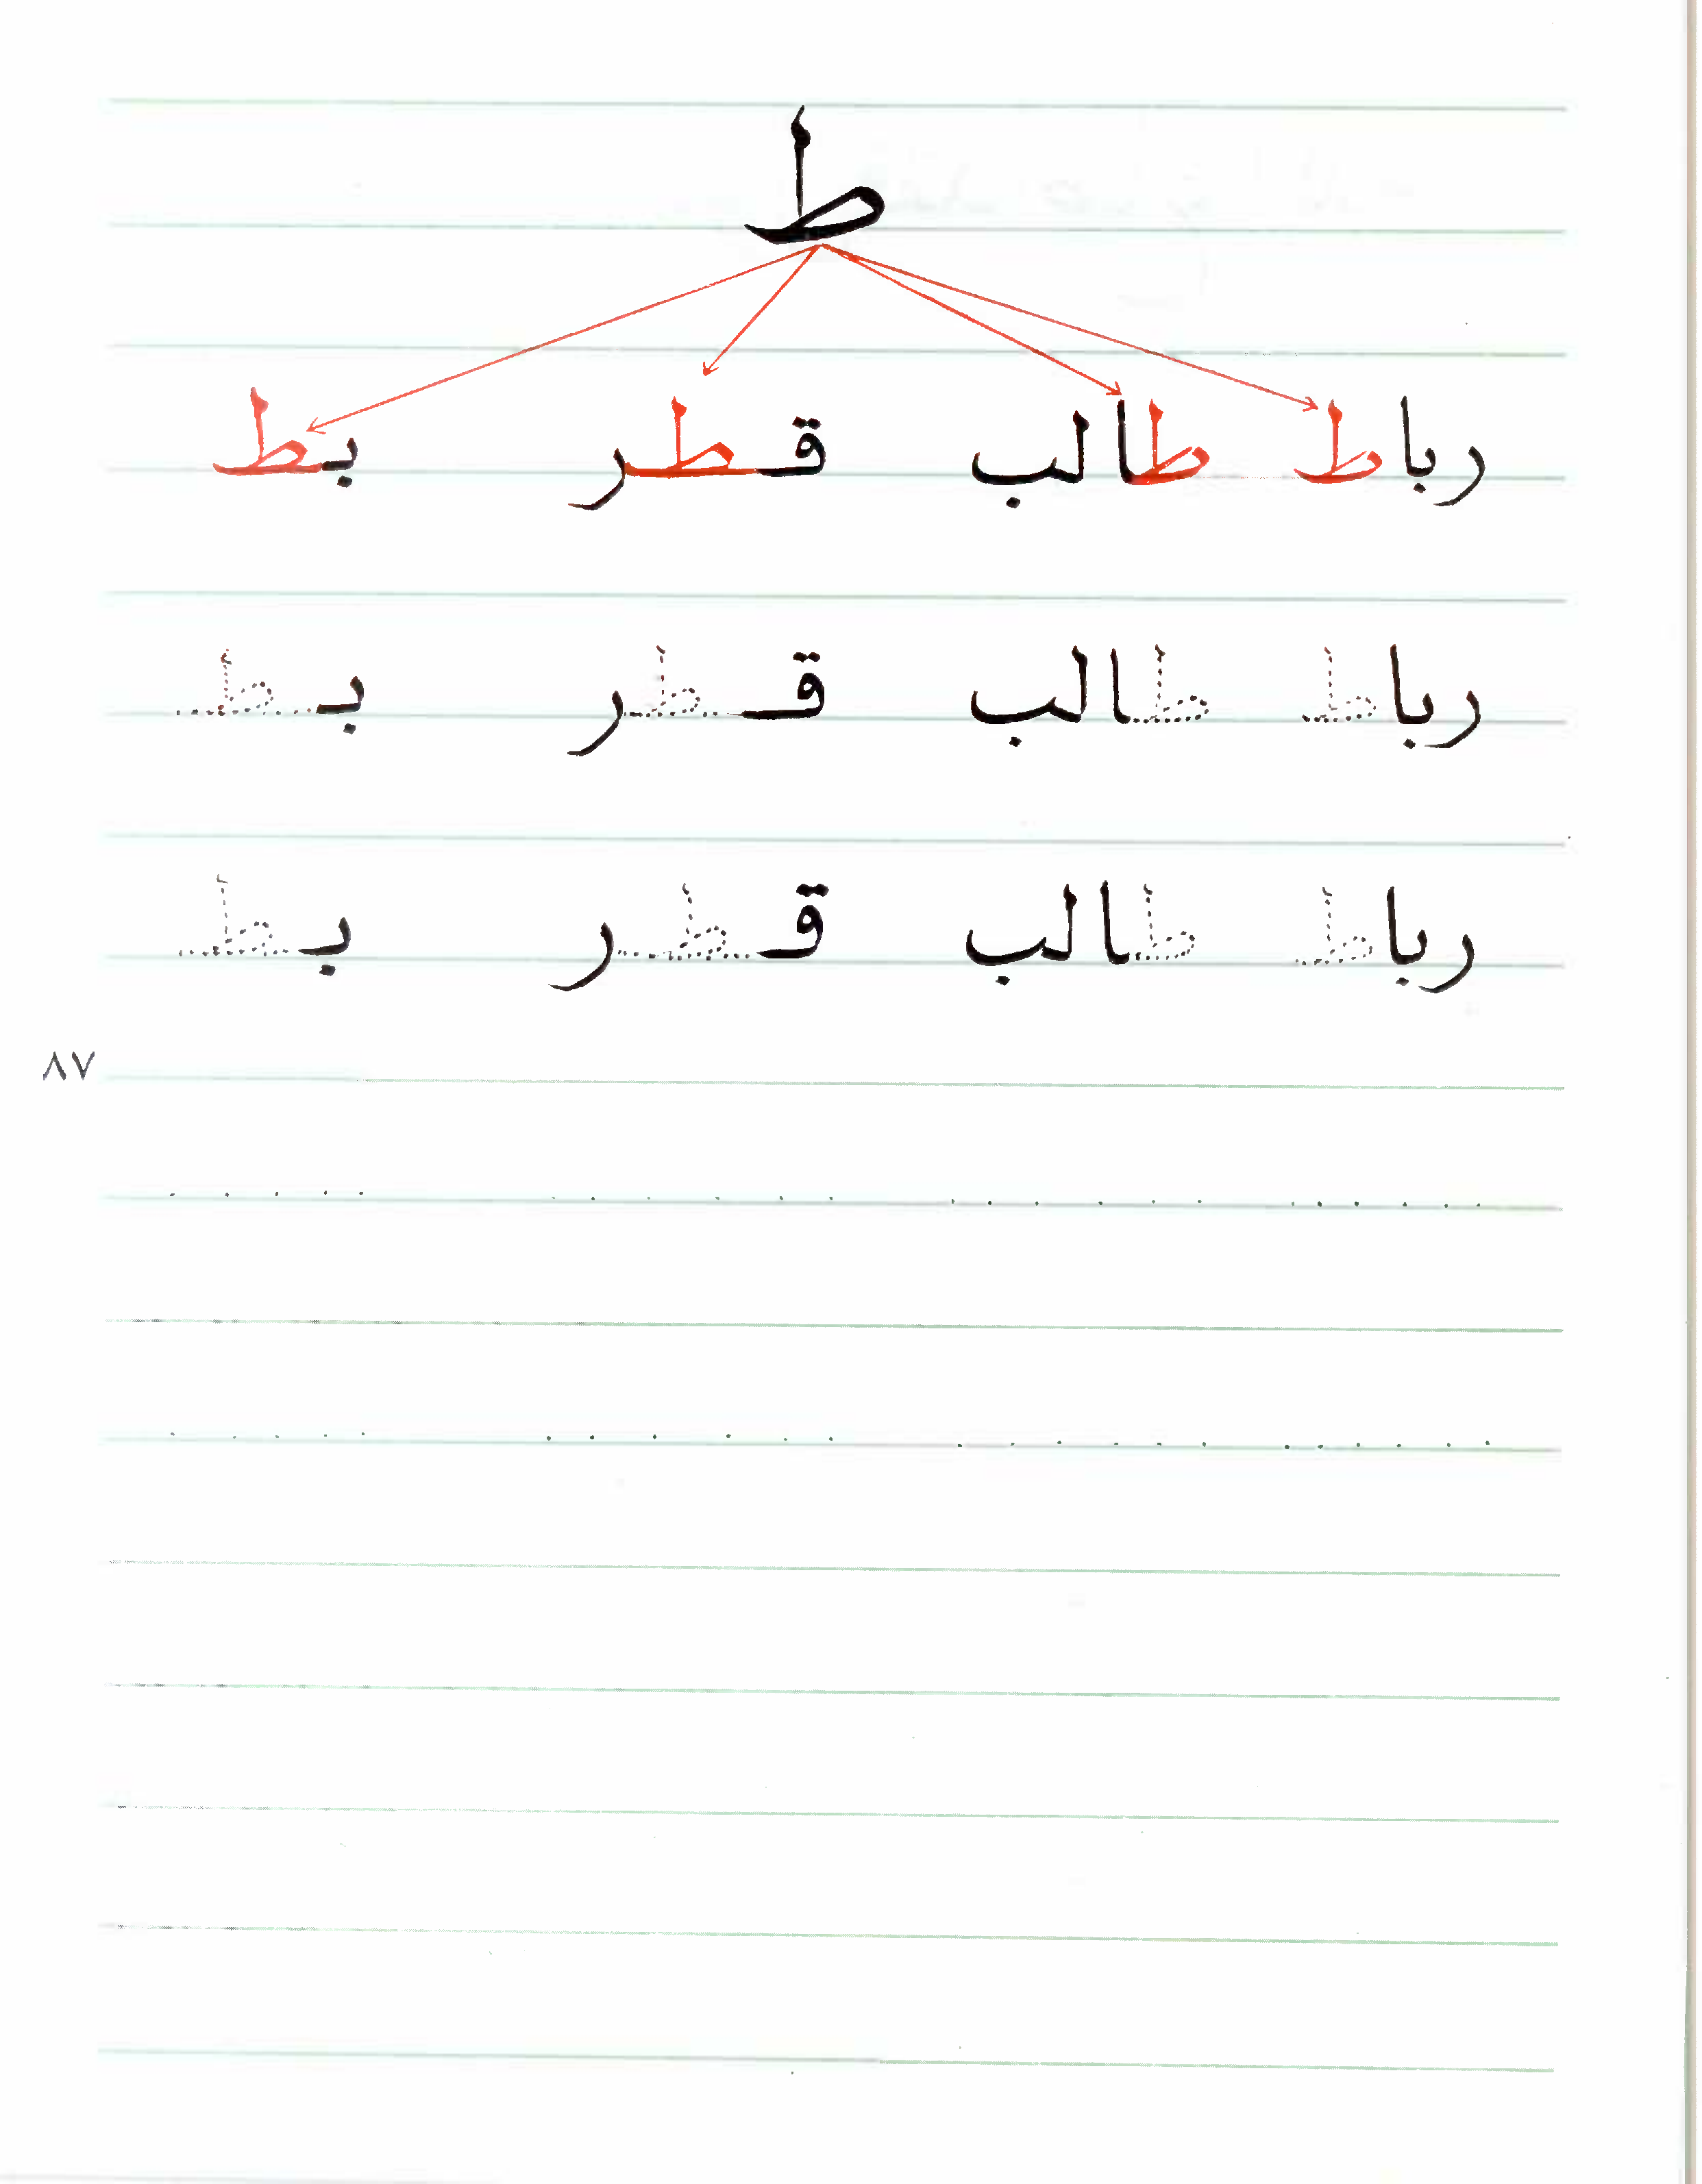 ط
رباط طالب قطر بط
رباط طالب قطر بط
رباط طالب قطر بط
٨٧